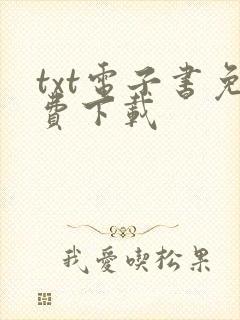 txt電子書免
費下載
我愛喫松果